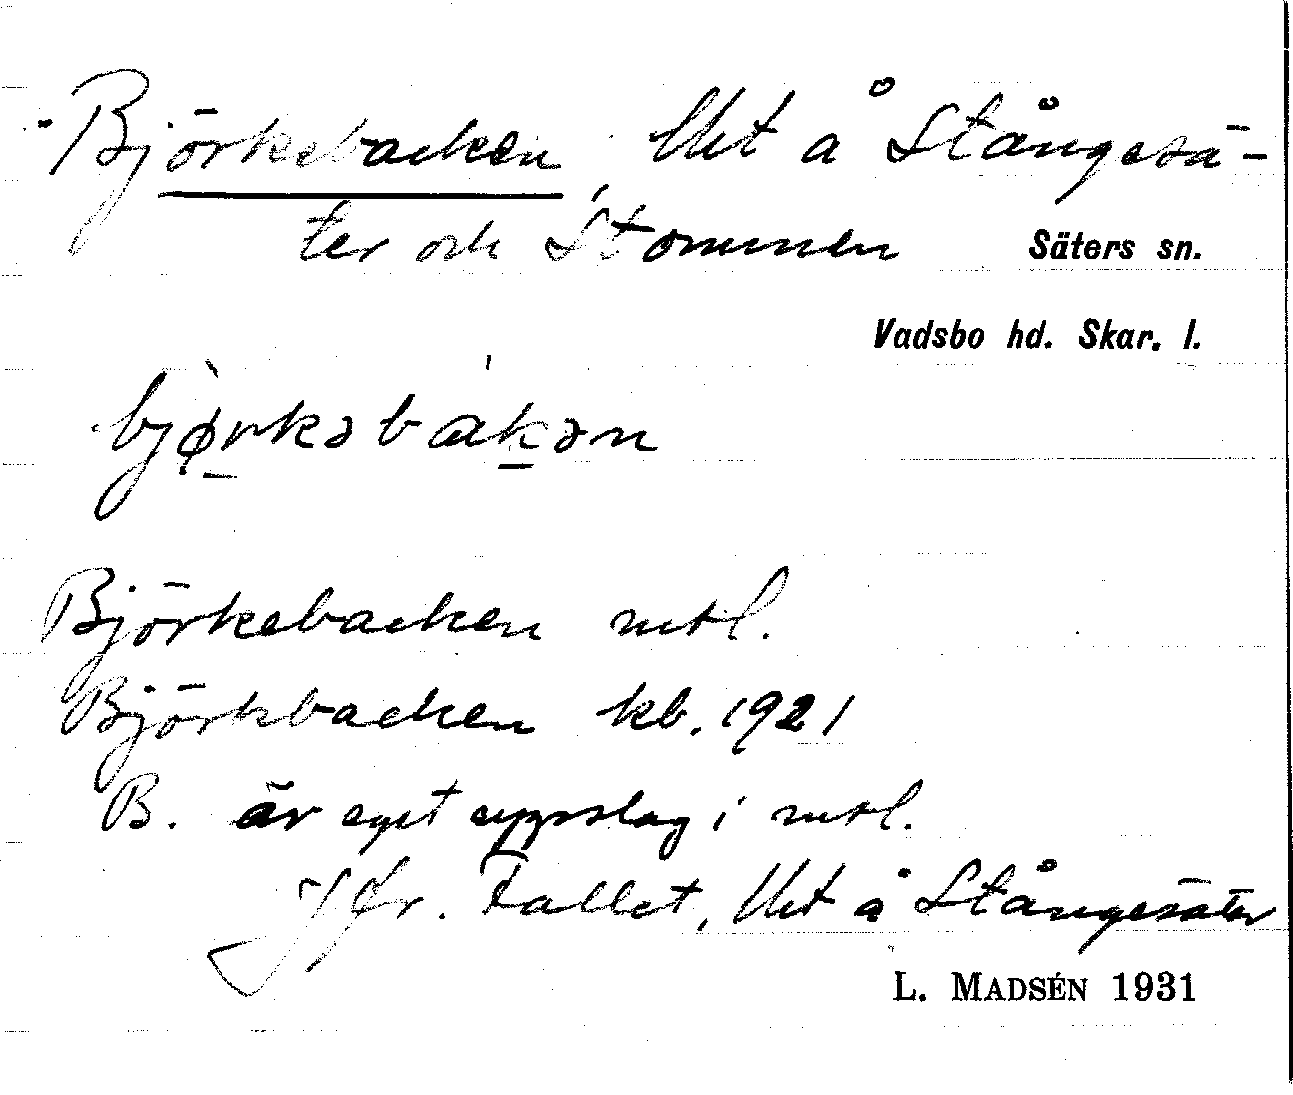 Björkebacken, lht å Stångesä-
ter och Stommen
Säters sn.
Vadsbo hd. Skar. l.
bjørkəbakən
Björkebacken mtl.
Björkbacken kb. 1921
B. är eget uppslag i mtl.
Jfr. Fallet, lht å Stångesäter
L. MADSÉN 1931